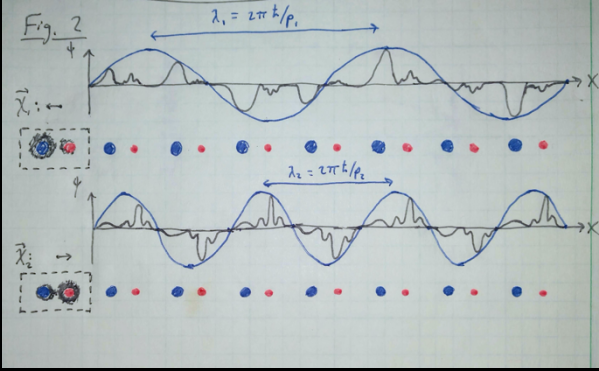 Fig. 2
λ₁ = 2πħ/p₁
ψ
x
x⃗₁: ↔
λ₂ = 2πħ/p₂
ψ
x
x⃗₂: ↔